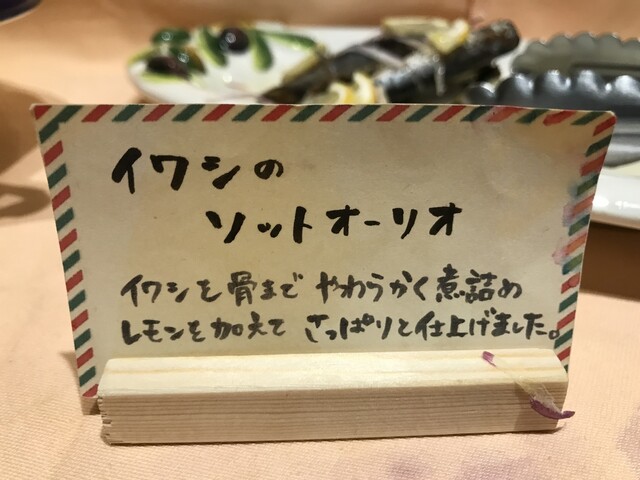 イワシの
ソットオーリオ
イワシを骨まで やわらかく煮詰め
レモンを加えて さっぱりと仕上げました。